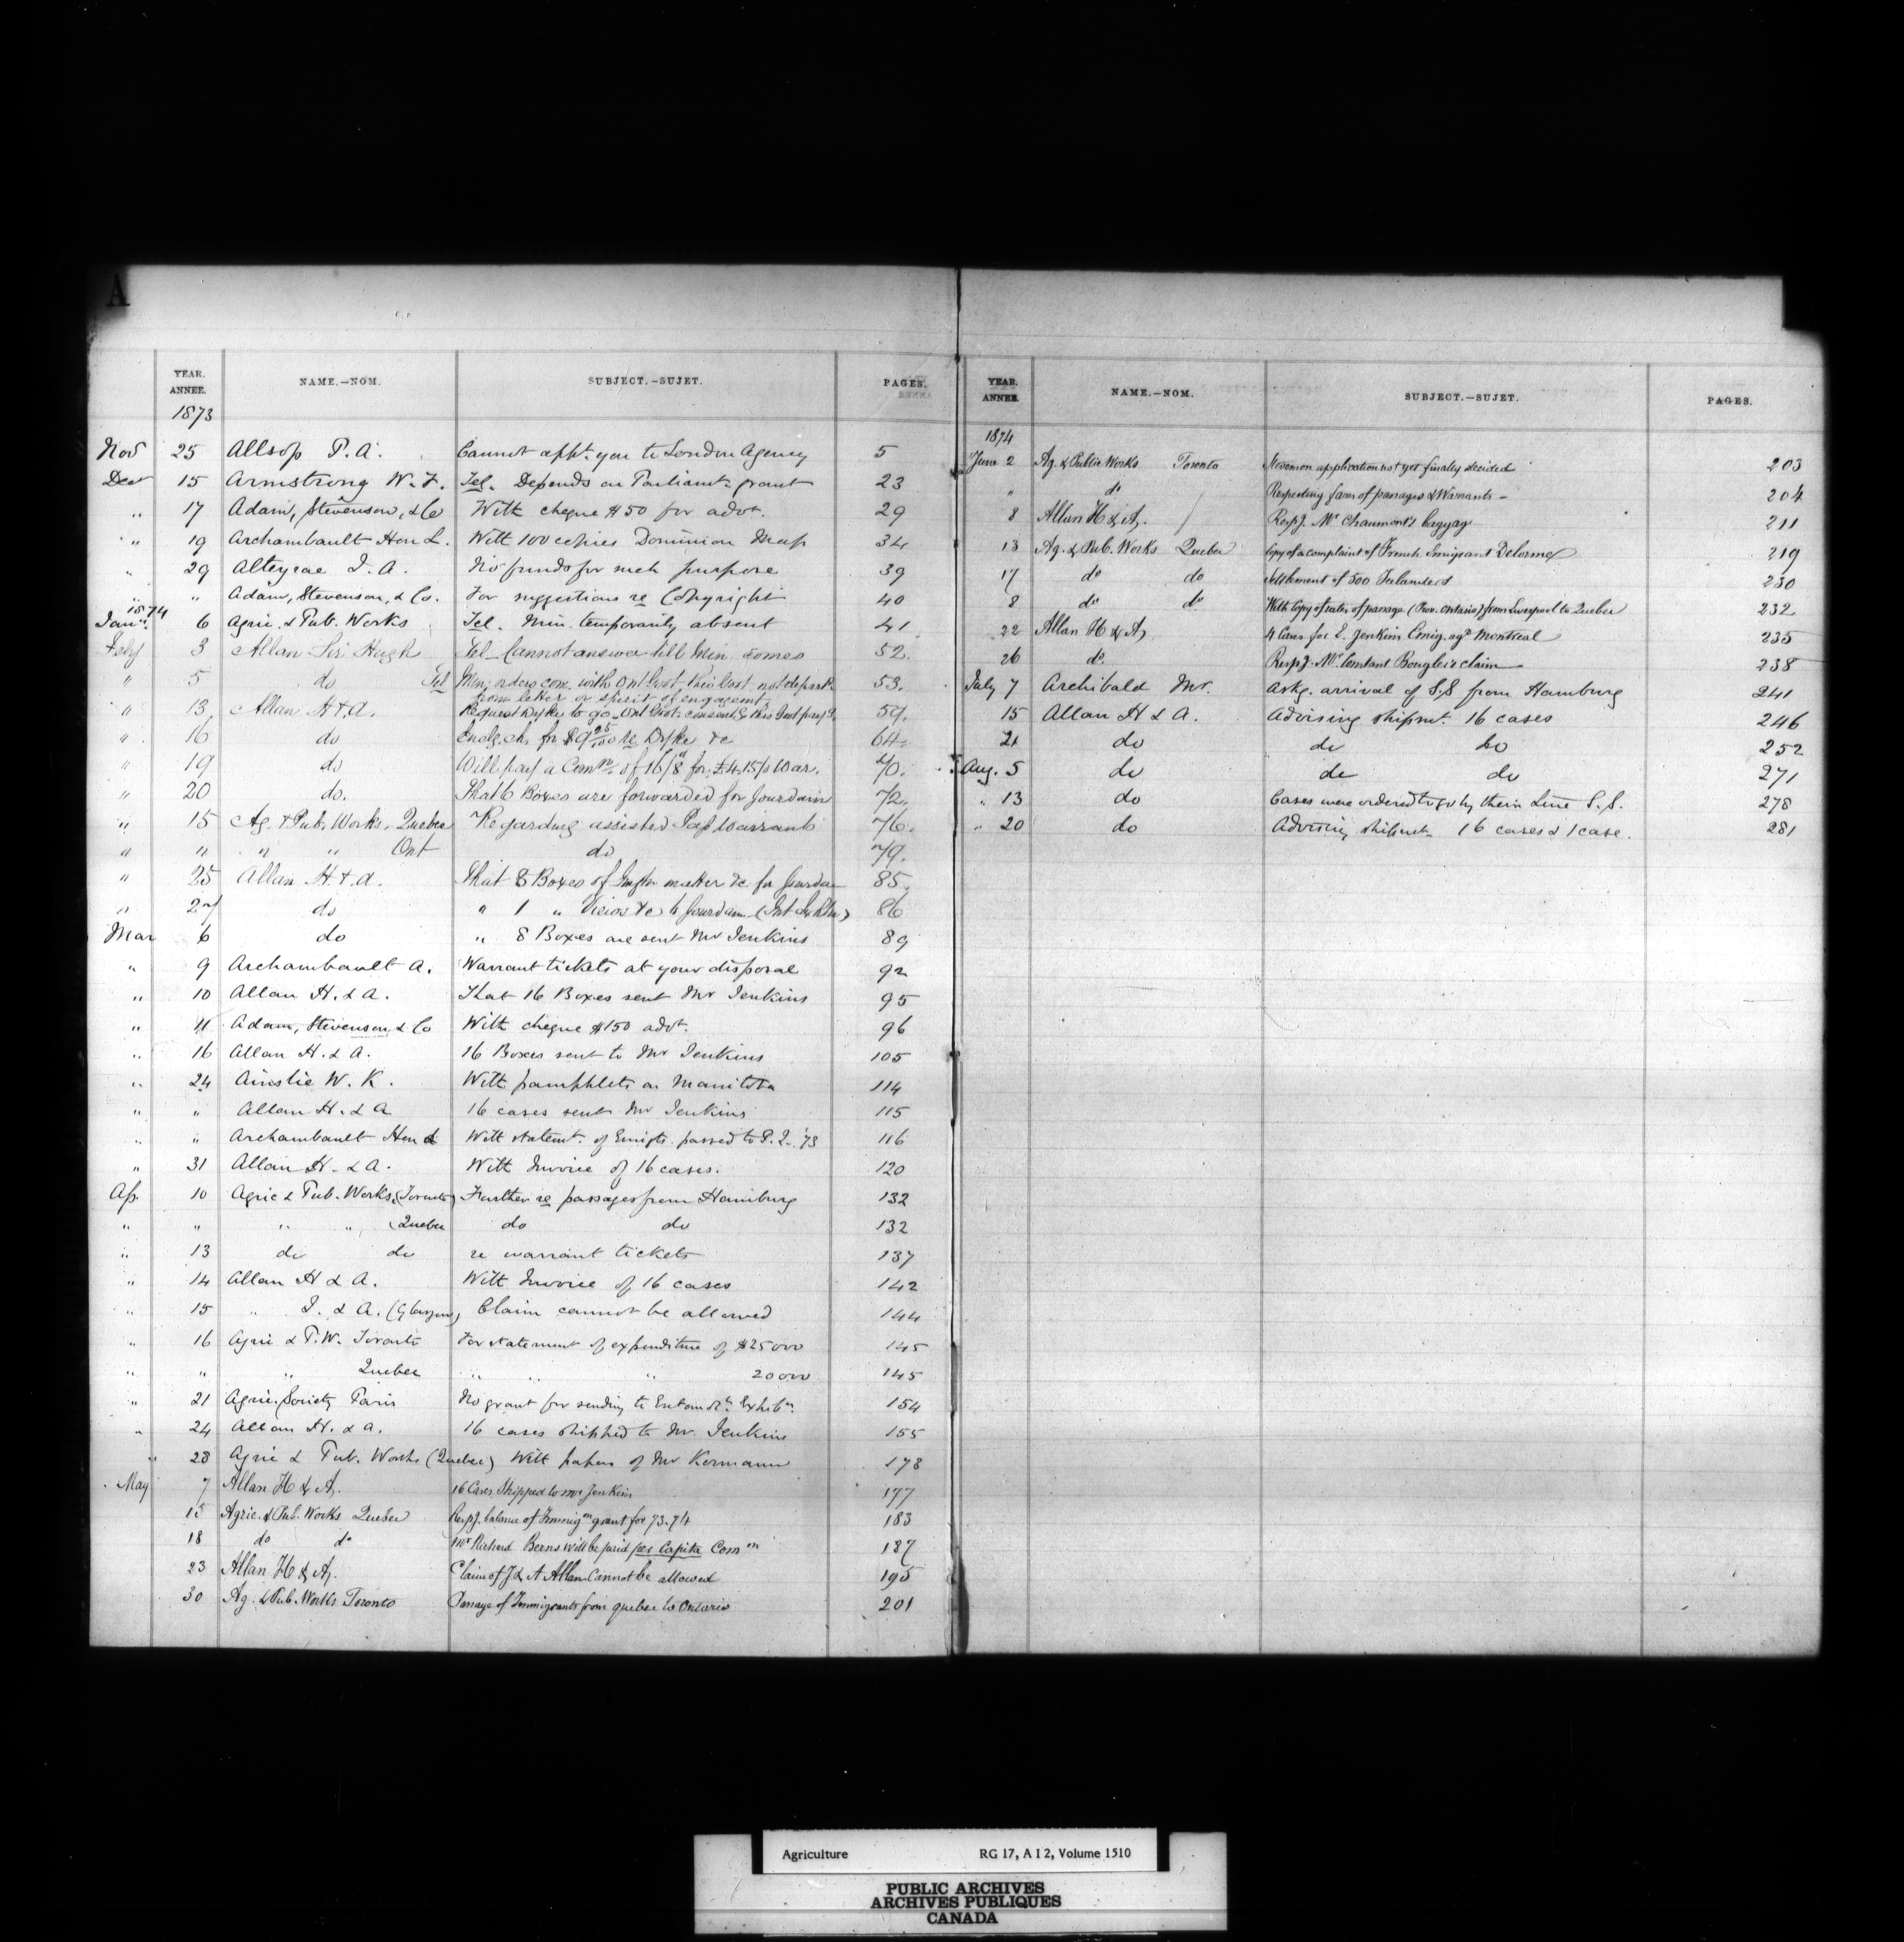 A
YEAR. ANNEE. NAME.—NOM. SUBJECT.—SUJET. PAGES.
1873
Nov 25 Allsop P. A. Cannot appt. you to London Agency 5
Dec 15 Armstrong W. F. Tel. Depends on Parliamt. grant 23
" 17 Adam, Stevenson, & Co With cheque $50 for advt. 29
" 19 Archambault Hen L. With 100 copies Dominion Map 34
" 29 Alteyrac J. A. No funds for such purpose 39
" " Adam, Stevenson, & Co. For suggestions re Copyright 40
1874
Jany. 6 Agric. & Pub. Works Tel. Min. temporarily absent 41
Feby 3 Allan Sir Hugh Tel. Cannot answer till Min. comes 52.
" 5 do Tel Min. orders com. with Ont Govt, this Govt not depart 53.
from letter or spirit of engagemt.
" 13 Allan H & A. Request Dyke to go. Ont Govt. consents this Govt pay 59.
" 16 do Enclg. ch. for $9 25/100 re Dyke &c 64.
" 19 do Will pay a Comn of 16/8d for £4.15/0 War. 70.
" 20 do. That 6 Boxes are forwarded for Jourdain 72.
" 15 Ag. & Pub. Works. Quebec Regarding assisted Pas Warrants 76.
" " " " Ont do 79.
" 25 Allan H. & A. That 8 Boxes of matter &c. for Jourdain 85.
" 27 do " 1 " &c to Jourdain 86
Mar 6 do " 8 Boxes are sent Mr Jenkins 89
" 9 Archambault A. Warrant tickets at your disposal 92
" 10 Allan H. & A. That 16 Boxes sent Mr Jenkins 95
" 11 Adam, Stevenson, & Co With cheque $150 advt. 96
" 16 Allan H. & A. 16 Boxes sent to Mr Jenkins 105
" 24 Ainslie W. K. With pamphlets on Manitoba 114
" " Allan H. & A 16 cases sent Mr Jenkins 115
" " Archambault Hen L With statemt. of Emigts. passed to P. Q. '73 116
" 31 Allan H. & A. With Invoice of 16 cases. 120
Ap. 10 Agric & Pub. Works, (Toronto) Further re passages from Hamburg 132
" " " " (Quebec do do 132
" 13 do do re warrant tickets 137
" 14 Allan H & A. With Invoice of 16 cases 142
" 15 " J. & A. (Glasgow) Claim cannot be allowed 144
" 16 Agric & P.W. Toronto For statement of expenditure of $25000 145
" " " Quebec " " " 20000 145
" 21 Agric. Society Paris No grant for sending to Entomolt. Exhibn. 154
" 24 Allan H. & A. 16 cases shipped to Mr. Jenkins 155
" 28 Agric & Pub. Works (Quebec) With papers of Mr Kormann 178
May 7 Allan H & A. 16 Cases Shipped to Mr Jenkins 177
15 Agric. & Pub. Works Quebec Respg. balance of Immign grant for 73-74 183
18 do do Mr Richard Berns will be paid per Capita Comn 187
23 Allan H & A. Claim of J & A Allan Cannot be allowed 195
30 Ag. & Pub. Works Toronto Passage of Immigrants from Quebec to Ontario 201
YEAR. ANNEE. NAME.—NOM. SUBJECT.—SUJET. PAGES.
1874
June 2 Ag. & Public Works Toronto Stevenson application not yet finally decided 203
" do Respecting fares of passages & Warrants 204
8 Allan H & A. Respg. Mr Chaumont's baggage 211
13 Ag. & Pub. Works Quebec Copy of a complaint of French Emigrant Delorme 219
17 do do Settlement of 500 Icelanders 230
8 do do With Copy of rates of passage (Prov. Ontario) from Liverpool to Quebec 232
22 Allan H & A. 4 Cases for E. Jenkins Emig. agt Montreal 235
26 do. Respg. Mr. Constant Bougleis claim 238
July 7 Archibald Mr. Askg. arrival of S.S from Hamburg 241
15 Allan H & A. Advising shipmt. 16 cases 246
21 do do do 252
Aug. 5 do do do 271
" 13 do Cases were ordered to go by their Line S.S. 278
" 20 do Advising shipmt. 16 cases & 1 case. 281
Agriculture RG 17, A I 2, Volume 1510
PUBLIC ARCHIVES
ARCHIVES PUBLIQUES
CANADA